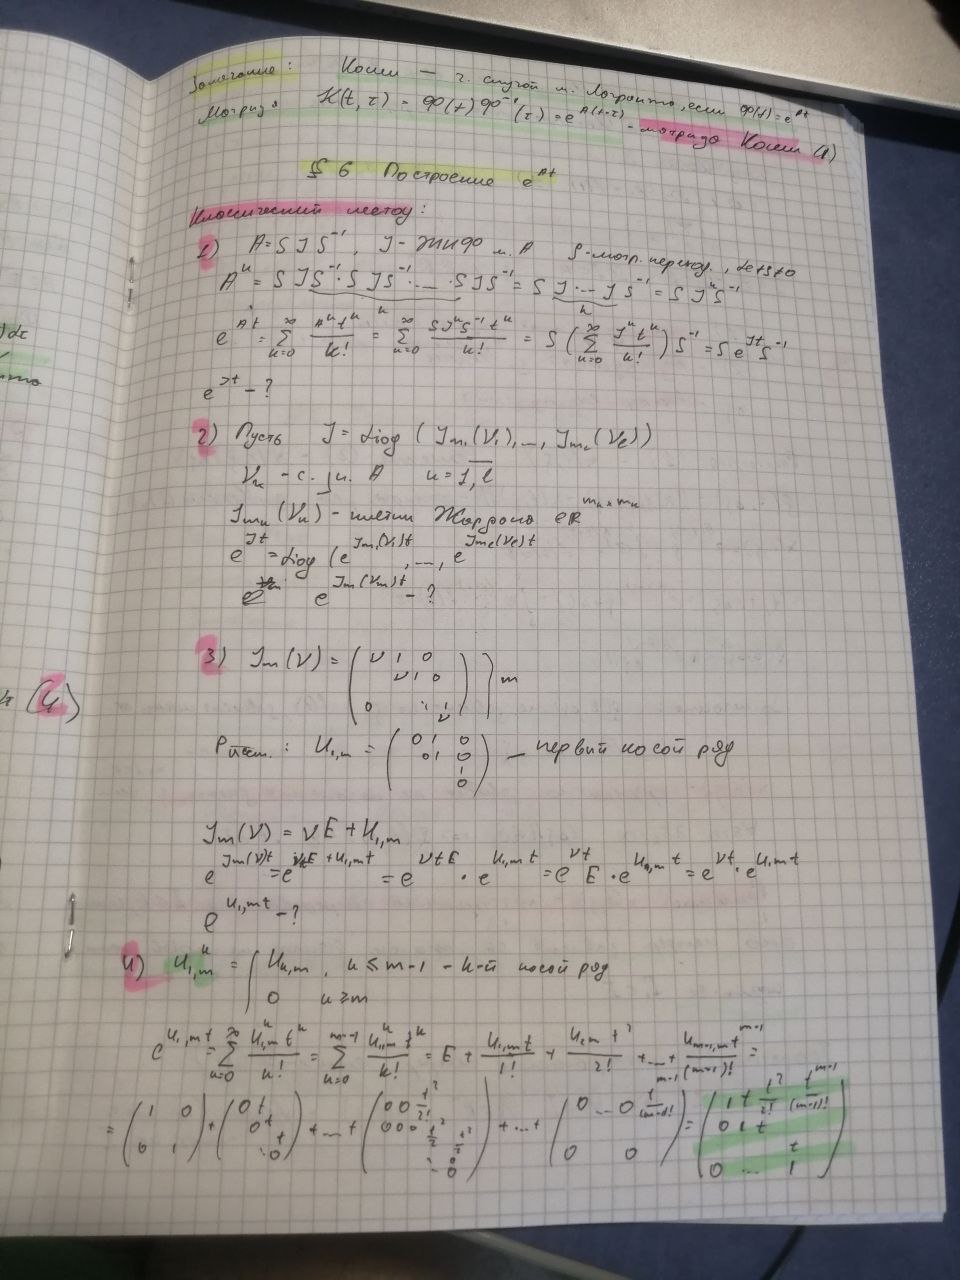 Замечание: Коши — ч. случай м. Лагранжа, если Φ(t) = e^{At}
Матрица K(t, τ) = Φ(t) Φ^{-1}(τ) = e^{A(t-τ)} - матрица Коши (4)
§ 6 Построение e^{At}
Классический метод:
1) A = S J S^{-1}, J - ЖНФ м. A S - матр. переход., det S ≠ 0
A^k = S J S^{-1} · S J S^{-1} · ... · S J S^{-1} = S J · ... J S^{-1} = S J^k S^{-1}
k k
e^{At} = ∑_{k=0}^{∞} A^k t^k / k! = ∑_{k=0}^{∞} S J^k S^{-1} t^k / k! = S ( ∑_{k=0}^{∞} J^k t^k / k! ) S^{-1} = S e^{Jt} S^{-1}
e^{Jt} - ?
2) Пусть J = diag ( J_{m_1}(ν_1), ..., J_{m_l}(ν_l) )
ν_k - с. зн. A k = \overline{1, l}
J_{m_k}(ν_k) - клетки Жордана ∈ R^{m_k × m_k}
e^{Jt} = diag ( e^{J_{m_1}(ν_1)t}, ..., e^{J_{m_l}(ν_l)t}
e^{J_m(ν_m)t} - ?
3) J_m(ν) = ( ν 1 0
ν 1 0
0 ⋱ 1
ν ) } m
Рассм.: U_{1,m} = ( 0 1 0
0 1 0
1
0 ) — первый косой ряд
J_m(ν) = ν E + U_{1,m}
e^{J_m(ν)t} = e^{νtE + U_{1,m} t} = e^{νtE} · e^{U_{1,m} t} = e^{νt} E · e^{U_{1,m} t} = e^{νt} · e^{U_{1,m} t}
e^{U_{1,m} t} - ?
4) U_{1,m}^k = { U_{k,m}, k ≤ m-1 - k-й косой ряд
0 k ≥ m
e^{U_{1,m} t} = ∑_{k=0}^{∞} U_{1,m}^k t^k / k! = ∑_{k=0}^{m-1} U_{1,m}^k t^k / k! = E + U_{1,m} t / 1! + U_{2,m} t^2 / 2! + ... + U_{m-1,m} t^{m-1} / (m-1)! =
= ( 1 0 ) + ( 0 t ) + ... + ( 0 0 t^2/2! ) + ... + ( 0 ... 0 t^{m-1}/(m-1)! ) = ( 1 t t^2/2! t^{m-1}/(m-1)! )
0 t 0 0 0 t^2/2 0 1 t
0 1 t t^2/2 0 0 t
⋱ 0 ⋱ 0 0 ... 1
dt
(4)